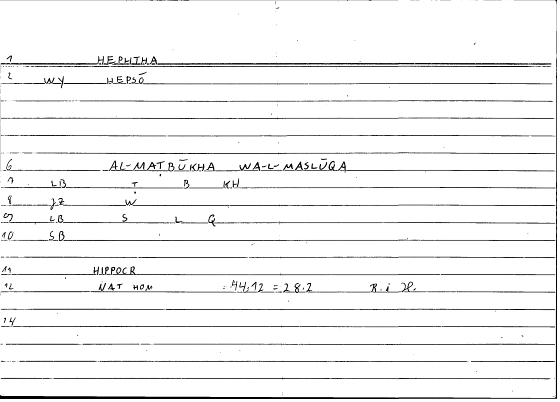 1 HEPHTHA
2 WY HEPSŌ
6 AL-MAṬBŪKHA WA-L-MASLŪQA
7 LB Ṭ B KH
8 JZ W
9 LB S L Q
10 SB
11 HIPPOCR
12 NAT HOM : 44,12 = 28.2 R. i H.
14